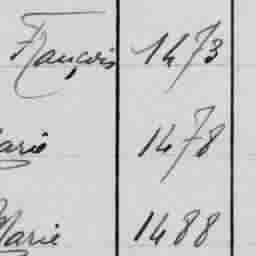 François 1473
arie 1478
Marie 1488